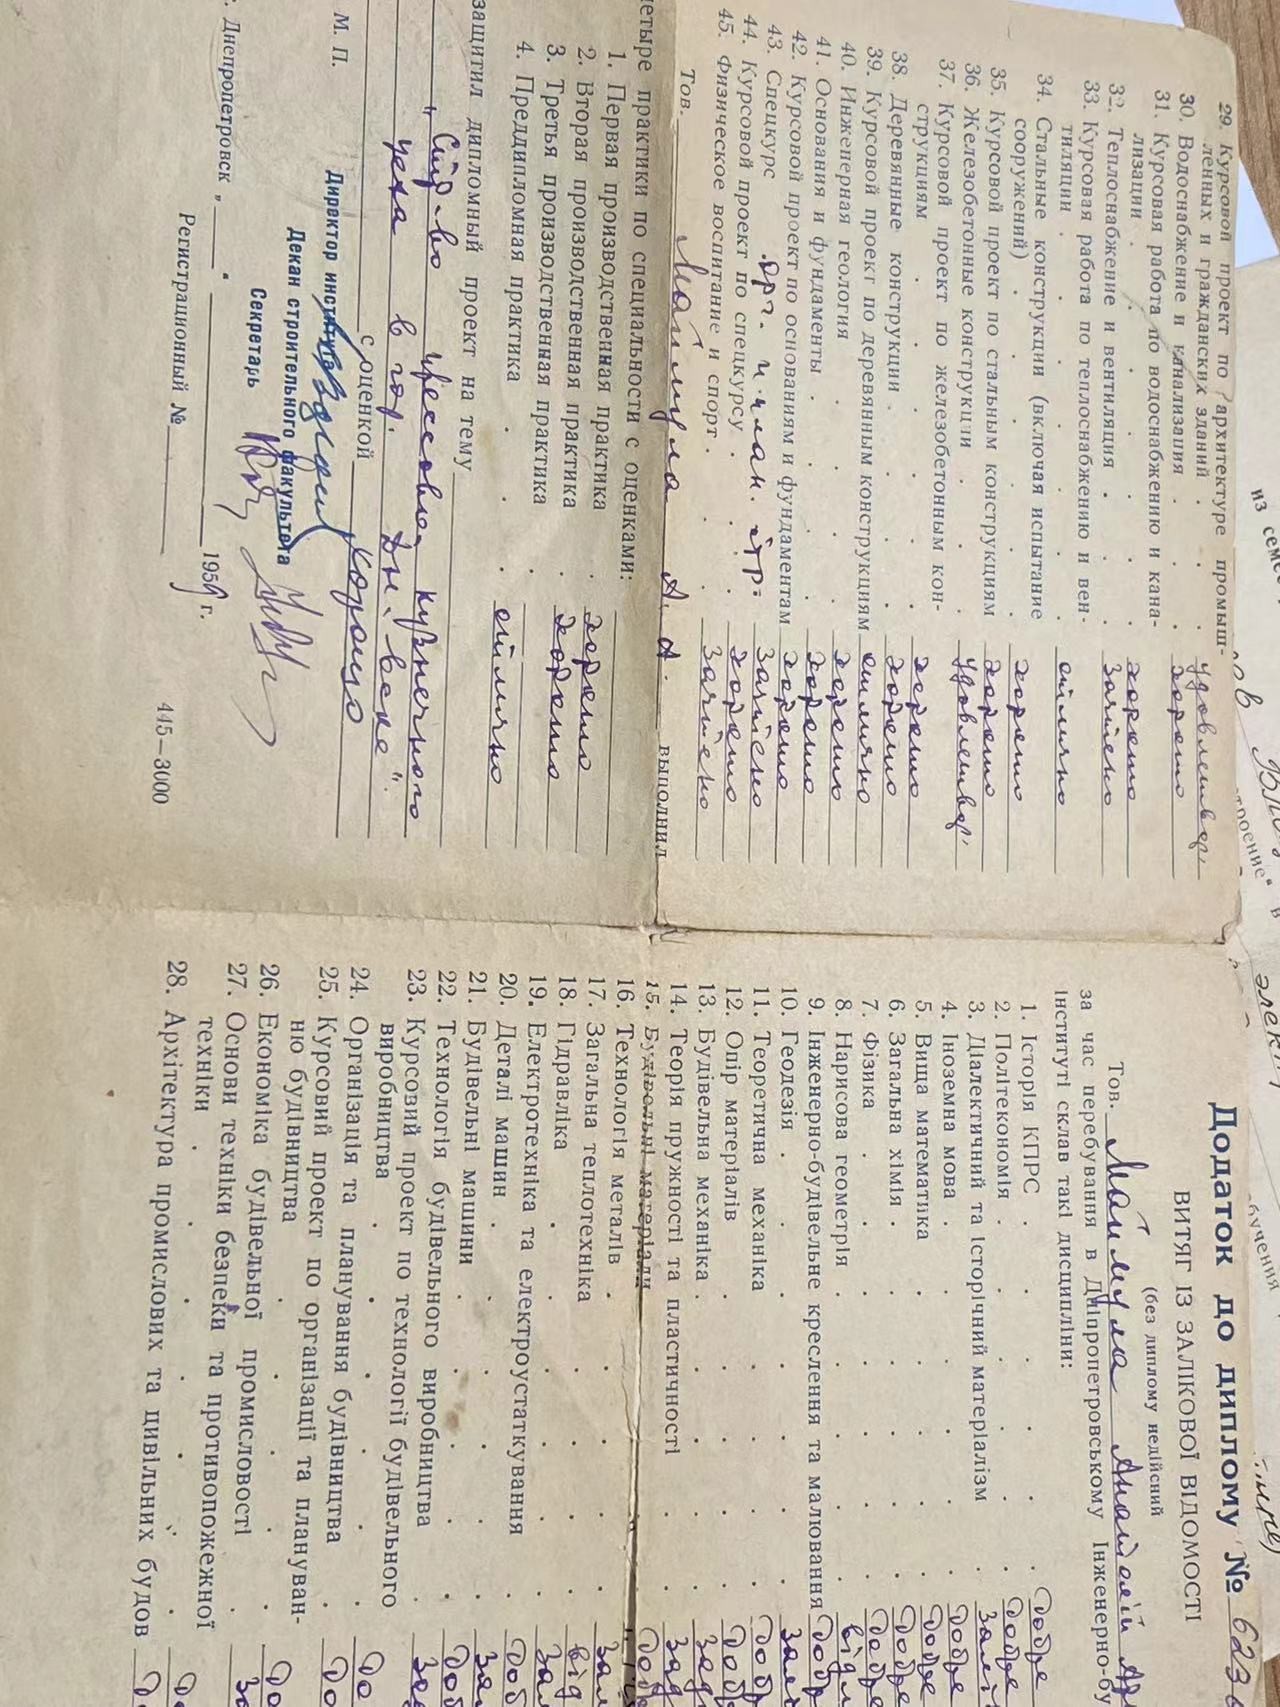 29. Курсовой проект по архитектуре промыш-
ленных и гражданских зданий . . удовлетвор
30. Водоснабжение и канализация . . хорошо
31. Курсовая работа по водоснабжению и кана-
лизации . . . . . хорошо
32. Теплоснабжение и вентиляция . . . зачтено
33. Курсовая работа по теплоснабжению и вен-
тиляции . . . . . отлично
34. Стальные конструкции (включая испытание
сооружений) . . . . . хорошо
35. Курсовой проект по стальным конструкциям хорошо
36. Железобетонные конструкции . . . удовлетвор
37. Курсовой проект по железобетонным кон-
струкциям . . . . . хорошо
38. Деревянные конструкции . . . . хорошо
39. Курсовой проект по деревянным конструкциям отлично
40. Инженерная геология . . . . хорошо
41. Основания и фундаменты . . . . хорошо
42. Курсовой проект по основаниям и фундаментам хорошо
43. Спецкурс орг. и план. стр. зачтено
44. Курсовой проект по спецкурсу . . хорошо
45. Физическое воспитание и спорт . . . зачтено
Тов. Маймула А. А. выполнил
четыре практики по специальности с оценками:
1. Первая производственная практика
2. Вторая производственная практика . хорошо
3. Третья производственная практика . хорошо
4. Преддипломная практика . . . отлично
защитил дипломный проект на тему
„Стр-во прессово кузнечного
цеха в гор. Дн.-вске".
с оценкой хорошо
М. П.
Директор института
Декан строительного факультета
Секретарь
г. Днепропетровск „ " 1959 г.
Регистрационный №
445—3000
Додаток до диплому № 623
ВИТЯГ ІЗ ЗАЛІКОВОЇ ВІДОМОСТІ
(без диплому недійсний
Тов. Маймула Анатолій
за час перебування в Дніпропетровському Інженерно-бу
інституті склав такі дисципліни:
1. Історія КПРС . . . . . Добре
2. Політекономія . . . . . Добре
3. Діалектичний та історичний матеріалізм
4. Іноземна мова . . . . . Добре
5. Вища математика . . . . Добре
6. Загальна хімія . . . . . Добре
7. Фізика . . . . . Добре
8. Нарисова геометрія . . . . відм
9. Інженерно-будівельне креслення та малювання Добр
10. Геодезія . . . . .
11. Теоретична механіка . . . . Добр
12. Опір матеріалів . . . . Добр
13. Будівельна механіка . . . .
14. Теорія пружності та пластичності . .
15. Будівельні матеріали . . . . Добр
16. Технологія металів . . . .
17. Загальна теплотехніка . . . .
18. Гідравліка . . . . . від
19. Електротехніка та електроустаткування .
20. Деталі машин . . . . . Доб
21. Будівельні машини . . . .
22. Технологія будівельного виробництва . . Доб
23. Курсовий проект по технології будівельного
виробництва . . . . .
24. Організація та планування будівництва . До
25. Курсовий проект по організації та плануван-
ню будівництва . . . . До
26. Економіка будівельної промисловості . До
27. Основи техніки безпеки та противопожежної
техніки . . . . .
28. Архітектура промислових та цивільних будов
из семес
троение" в
обучения